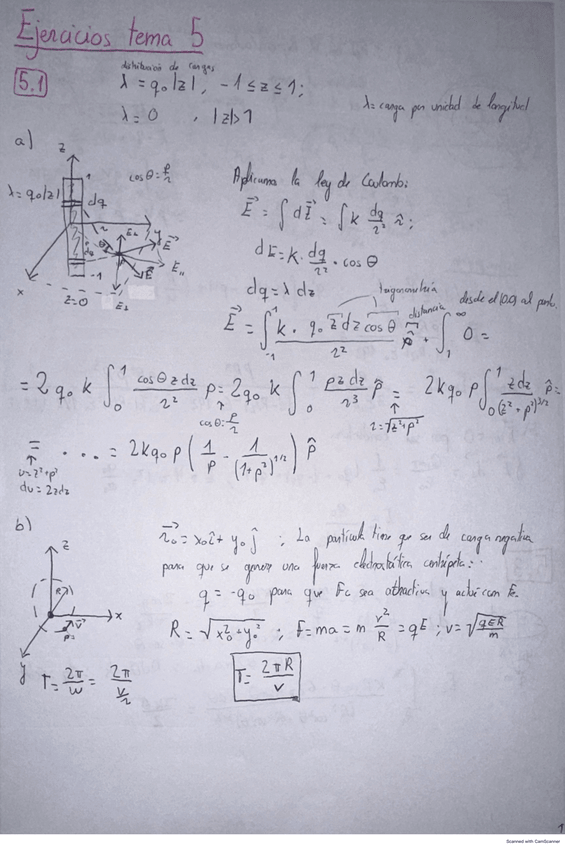 Ejercicios tema 5
5.1
distribución de cargas
λ = q₀|z| , -1 ≤ z ≤ 1;
λ = 0 , |z|>1
λ = carga por unidad de longitud
a)
z
1
cos θ = ρ/r
λ = q₀|z|
dq
r
θ
y
E⊥
E⃗
E⃗
E₁₁
E⊥
-1
x
z=0
Aplicamos la ley de Coulomb:
E⃗ = ∫ dE⃗ = ∫ k dq/r² r̂ ;
dE = k · dq/r² · cos θ
dq = λ dz
trigonometría
distancia
desde el (0,0) al punto
E⃗ = ∫₋₁¹ k · q₀ z dz cos θ / r² ρ̂ + ∫₁^∞ 0 =
= 2 q₀ k ∫₀¹ cosθ z dz / r² ρ̂ = 2q₀ k ∫₀¹ ρz dz / r³ ρ̂ = 2kq₀ ρ ∫₀¹ zdz / (z²+ρ²)^3/2 ρ̂ =
cos θ = ρ/r
r = √z²+ρ²
= ... = 2kq₀ ρ ( 1/ρ - 1/(1+ρ²)^1/2 ) ρ̂
u = z²+ρ²
du = 2zdz
b)
z
R
x
v⃗
y
r⃗₀ = x₀î + y₀ĵ ; La partícula tiene que ser de carga negativa
para que se genere una fuerza electrostática centrípeta:
q = -q₀ para que Fc sea attractiva y actúe con Fe.
R = √x₀²+y₀² ; F = ma = m v²/R = qE ; v = √qER/m
T = 2π/w = 2π / v/r
T = 2πR/v
1
Scanned with CamScanner